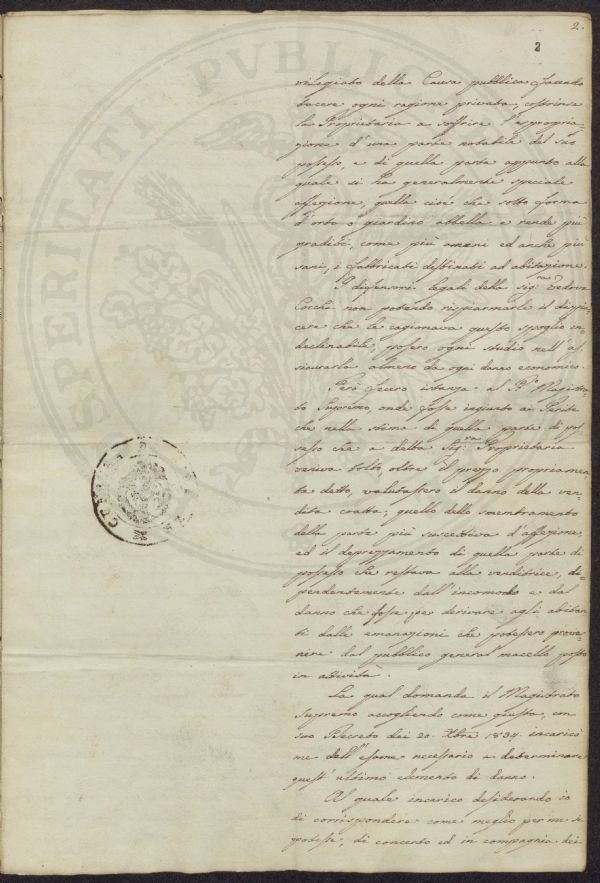 2.
2
vilegiato della Causa pubblica facendo
tacere ogni ragione privata, costrinse
la Proprietaria a soffrire l'espropria=
zione d'una parte notabile del suo
possesso, e di quella parte appunto alla
quale si ha generalmente speciale
affezione, quella cioè che sotto forma
d'orto o giardino abbella e rende più
graditi, come più ameni ed anche più
sani, i fabbricati destinati ad abitazione.
I difensori legali della Sig.ra Vedova
Cocchi non potendo risparmarle il dispia=
cere che le cagionava questo spoglio in=
declinabile, posero ogni studio nell'as=
sicurarla almeno da ogni danno economico.
Però fecero istanza al Magistra=
to Supremo, onde fosse ingiunto ai Periti
che nella stima di quella parte di pos=
sesso che a detta Sig.ra Proprietaria
veniva tolto, oltre il prezzo propriamen=
te detto, valutassero il danno della ven=
dita coatta; quello dello smembramento
della parte più suscettiva d'affezione,
ed il deprezzamento di quella parte di
possesso che restava alla venditrice, di=
pendentemente dall'incomodo e dal
danno che fosse per derivare agli abitan=
ti dalle emanazioni che potessero prove=
nire dal pubblico general macello posto
in attività.
La qual domanda il Magistrato
Supremo accogliendo come giusta, con
suo Decreto dei 20. Xbre 1834. incaricò
me dell'esame necessario a determinare
quest'ultimo elemento di danno.
Al quale incarico desiderando io
di corrispondere come meglio per me si
potesse, di concerto ed in compagnia dei
SPERITATI PVBLIC